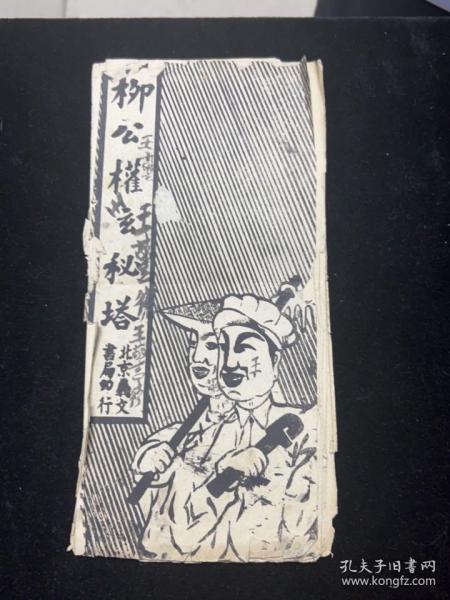 柳公權玄秘塔
北京義文
書局印行
王
孔夫子旧书网
www.kongfz.com